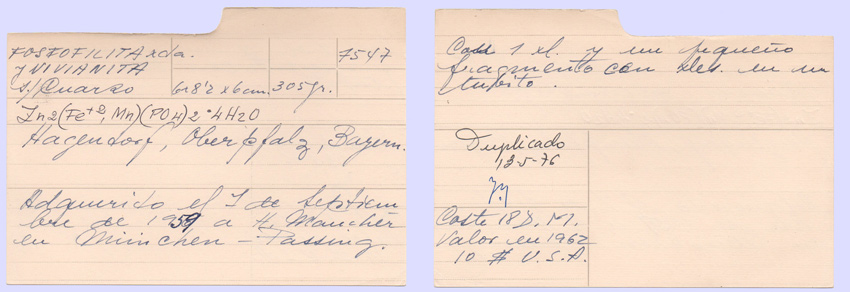 FOSFOFILITA xda.
y VIVIANITA
s/Cuarzo
7547
6x8'2 x6cm. 305gr.
Zn2(Fe+2, Mn)(PO4)2·4H2O
Hagendorf, Oberpfalz, Bayern.
Adquirido el 1 de Septiem
bre de 1959 a H. Mancher
en München - Passing.
Con 1 xl. y un pequeño
fragmento con xles. en un
tubito.
Duplicado
12-5-76
Coste 18 D.M.
Valor en 1962
10 $ U.S.A.